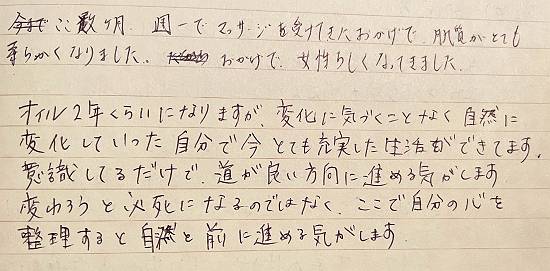 今まで ここ数ヶ月、週一でマッサージを受けてきたおかげで、肌質がとても
柔らかくなりました。 おかげで、女性らしくなってきました。
オイル2年くらいになりますが、変化に気づくことなく自然に
変化していった自分で今とても充実した生活ができてます。
意識してるだけで、道が良い方向に進める気がします
変わろうと必死になるのではなく、ここで自分の心を
整理すると自然と前に進める気がします。